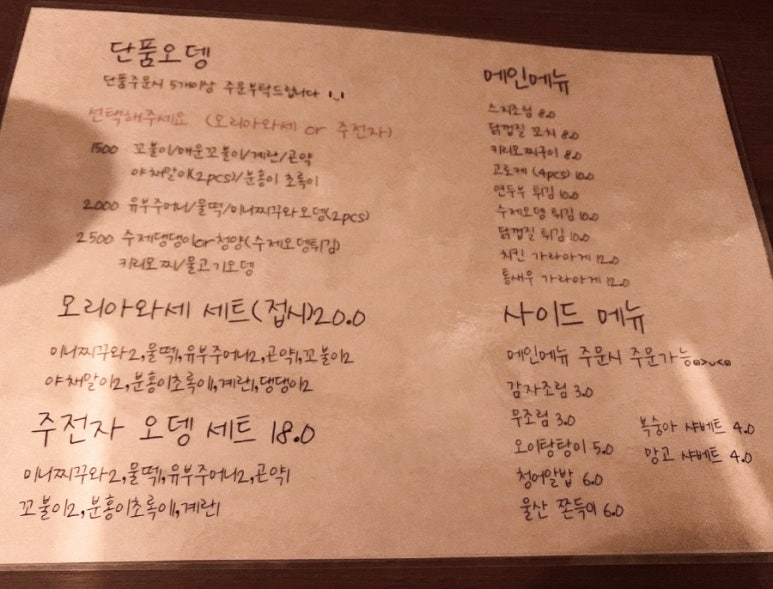 단품오뎅
단품주문시 5개이상 주문부탁드립니다
선택해주세요 (모리아와세 or 주전자)
1500 꼬불이/매운꼬불이/계란/곤약
야채말이(2pcs)/분홍이 초록이
2000 유부주머니/물떡/미니찌꾸와오뎅(2pcs)
2500 수제댕댕이or청양(수제오뎅튀김)
키리모찌/물고기오뎅
모리아와세 세트(접시)20.0
미니찌꾸와2,물떡1,유부주머니2,곤약1,꼬불이2
야채말이2,분홍이초록이1,계란1,댕댕이2
주전자 오뎅 세트 18.0
미니찌꾸와2,물떡1,유부주머니2,곤약1
꼬불이2,분홍이초록이1,계란1
메인메뉴
스지조림 8.0
닭껍질 꼬치 8.0
키리모찌구이 8.0
고로케 (4pcs) 10.0
연두부 튀김 10.0
수제오뎅 튀김 10.0
닭껍질 튀김 10.0
치킨 가라아게 12.0
통새우 가라아게 12.0
사이드 메뉴
메인메뉴 주문시 주문가능
감자조림 3.0
무조림 3.0
오이탕탕이 5.0
청어알밥 6.0
울산 쫀득이 6.0
복숭아 샤베트 4.0
망고 샤베트 4.0